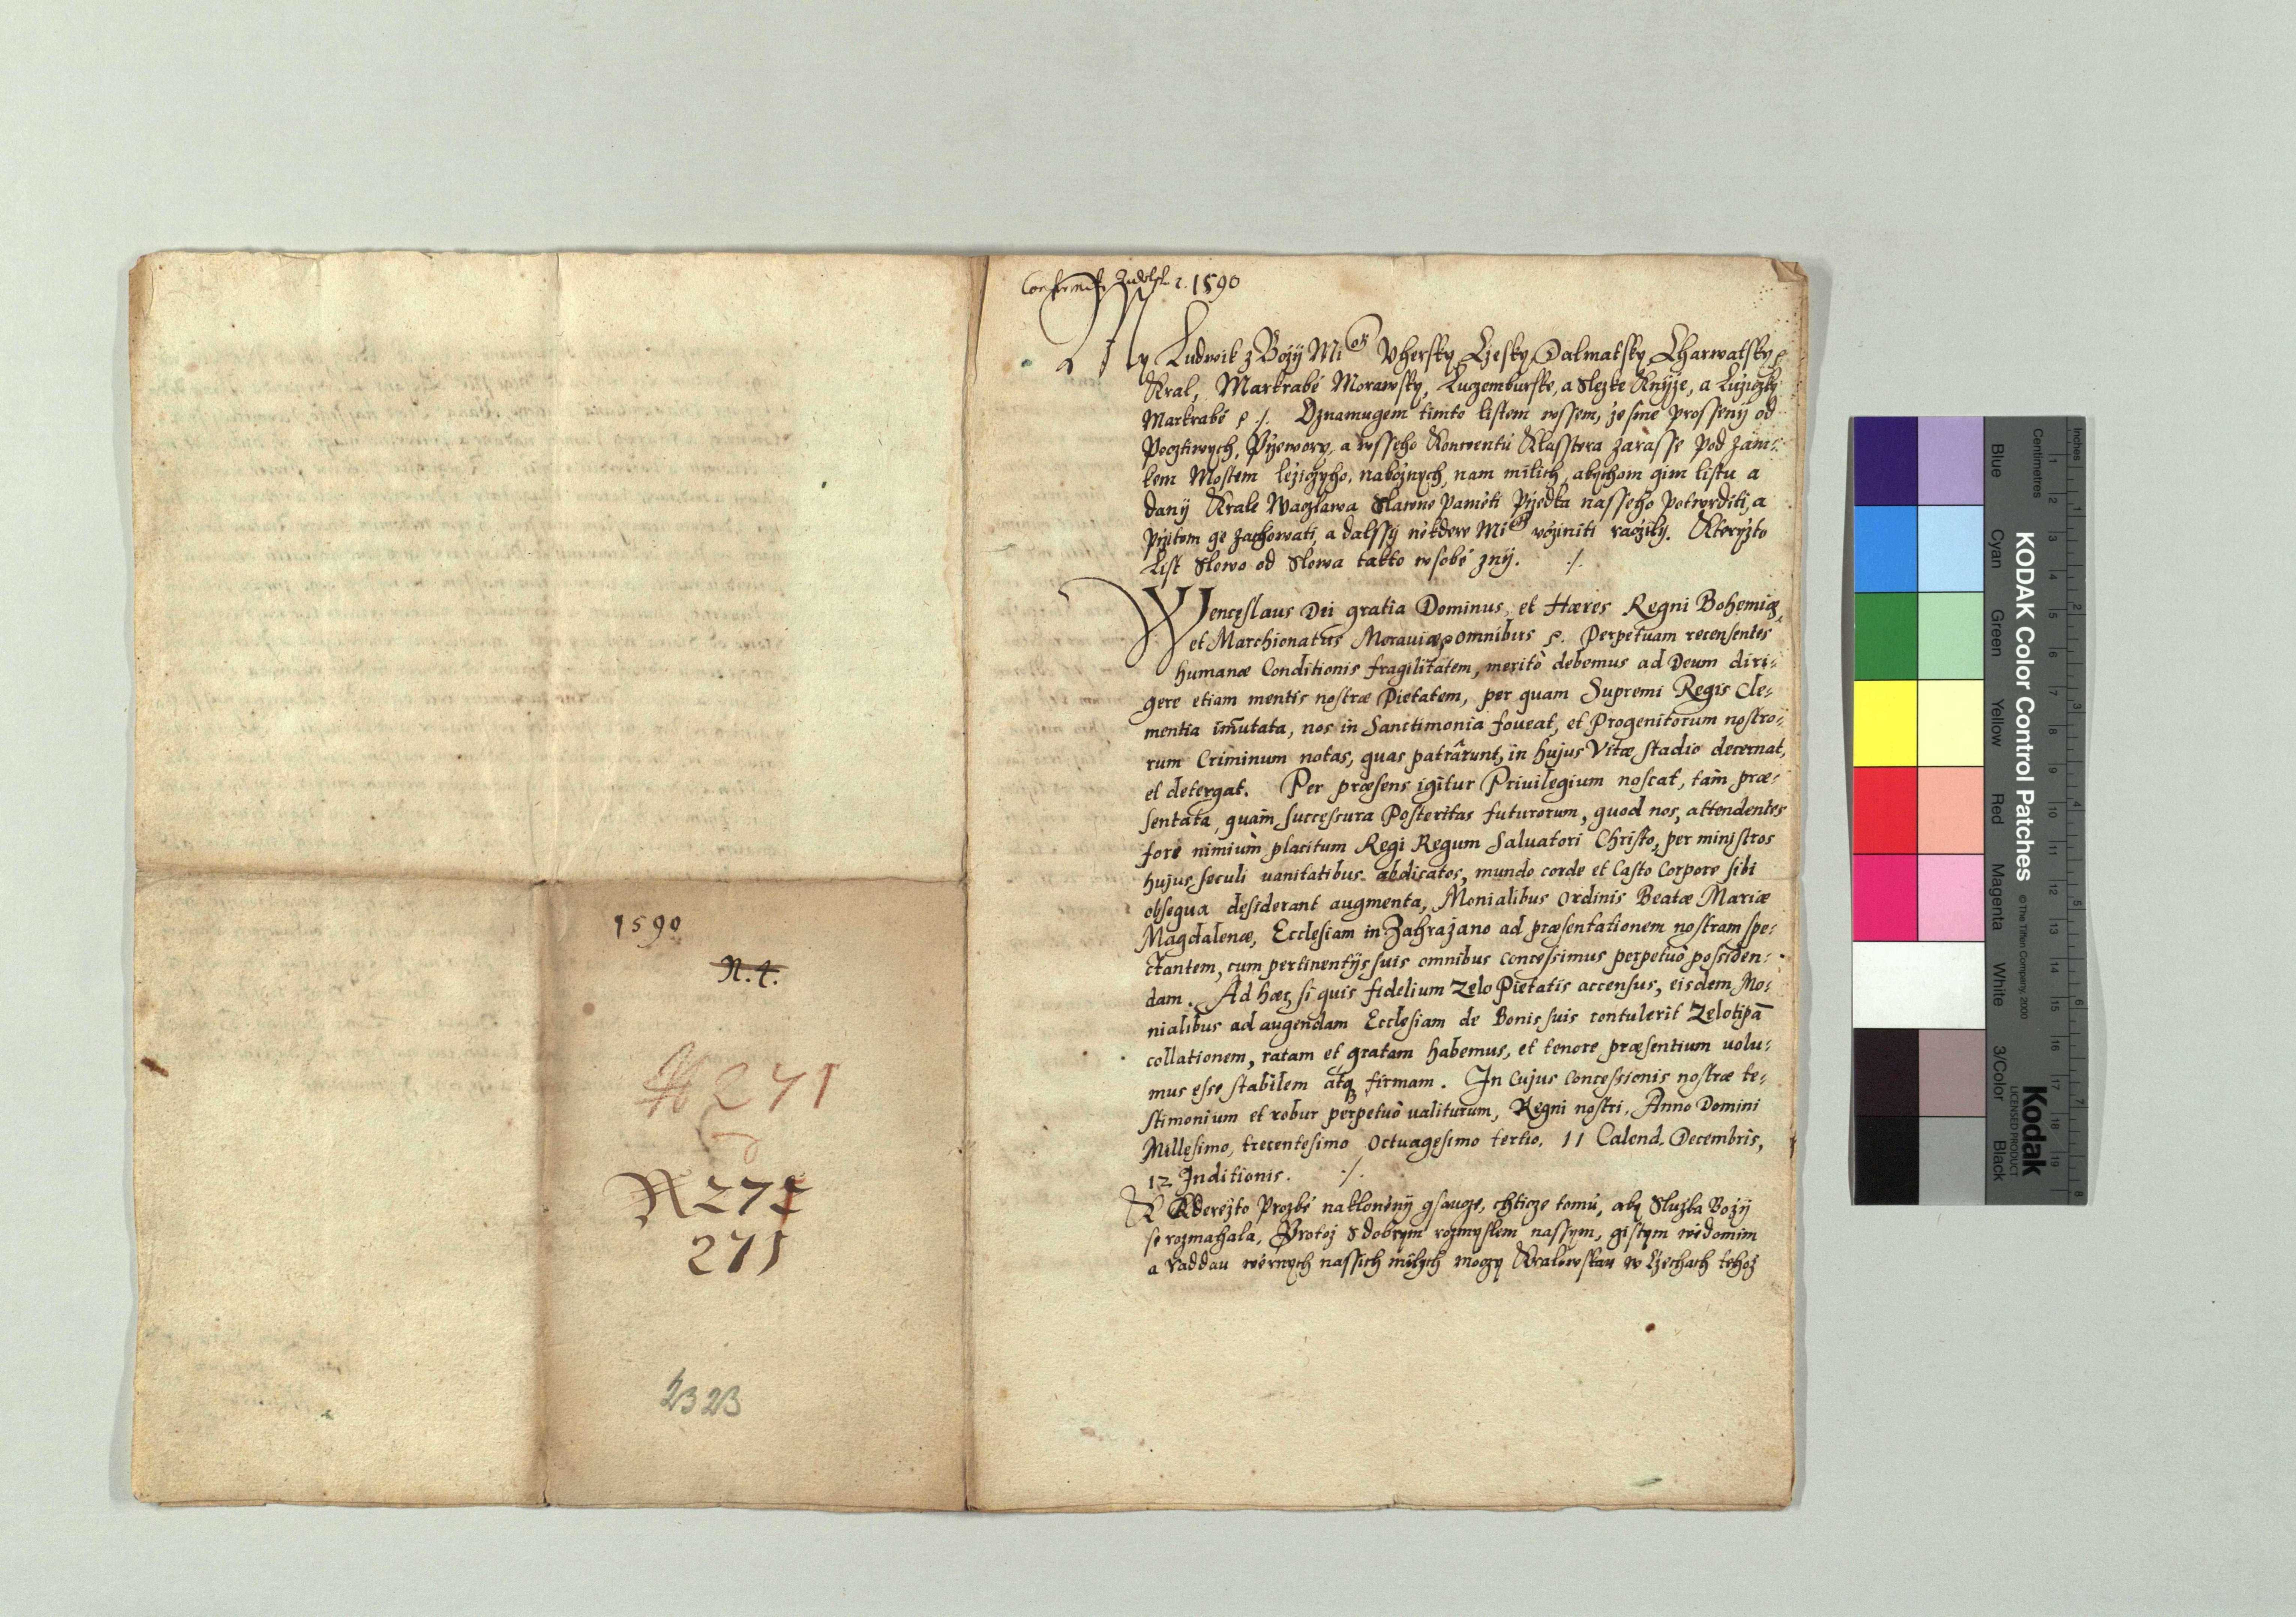 1590
N. 4.
N 271
N 272
271
2323
Confirmat. Rudolf. 2. 1590
My Ludwik z Božý Mi^osti Vhersky Cżesky Dalmatsky Charwatsky ꝛc
Kral, Markrabě Morawsky, Luczemburske, a Slezke Knýže, a Lužiczky
Markrabě ꝛc ⁒ Oznamugem timto listem wssem, že sme prosseny od
Pocztiwych, Pržewory, a wsseho Konwentu Klasstera Zarasse pod Zam=
kem Mostem ležiczyho, nabožnych, nam milich, abychom gim listu a
dany Krale Waczlawa Slawne Paměti Pržedka nasseho potwrditi, a
Pržitom ge zachowati, a dalssy Mi^ost včziniti račzily. Kteryžto
List Slowo od Slowa takto w sobě zný. ⁒
Wenceslaus Dei gratia Dominus, et Hæres Regni Bohemiæ,
et Marchionatus Morauiæ, omnibus ꝛc. Perpetuam recensentes
humanæ Conditionis fragilitatem, meritò debemus ad Deum diri=
gere etiam mentis nostræ Pietatem, per quam Supremi Regis Cle=
mentia im̄utata, nos in Sanctimonia foueat, et Progenitorum nostro=
rum Criminum notas, quas patrârunt, in hujus Vitæ stadio decernat,
et detergat. Per præsens igitur Priuilegium noscat, tam præ=
sentata, quàm successura Posteritas futurorum, quod nos, attendentes
fore nimiùm placitum Regi Regum Saluatori Christo, per ministros
hujus seculi uanitatibus abdicatos, mundo corde et Casto Corpore sibi
obsequa desiderant augmenta, Monialibus Ordinis Beatæ Mariæ
Magdalenæ, Ecclesiam in Zahražano ad præsentationem nostram spe=
ctantem, cum pertinentijs suis omnibus concessimus perpetuò possiden=
dam. Ad hæc, si quis fidelium Zelo Pietatis accensus, eisdem Mo=
nialibus ad augendam Ecclesiam de Bonis suis contulerit Zelotipā
collationem, ratam et gratam habemus, et tenore præsentium uolu=
mus esse stabilem atq̃ firmam. In Cujus Concessionis nostræ te=
stimonium et robur perpetuò ualiturum, Regni nostri, Anno Domini
Millesimo, trecentesimo Octuagesimo tertio, 11 Calend. Decembris,
12 Inditionis. ⁒
K Kderežto Prozbě nakloněny gsauce, chticze tomu, aby Služba Božy
se rozmahala, Protož s dobrym rozmyslem nassym, gistym wědomim
a raddau wěrnych nassich milych moczy Kralowskau w Cżechach tehož